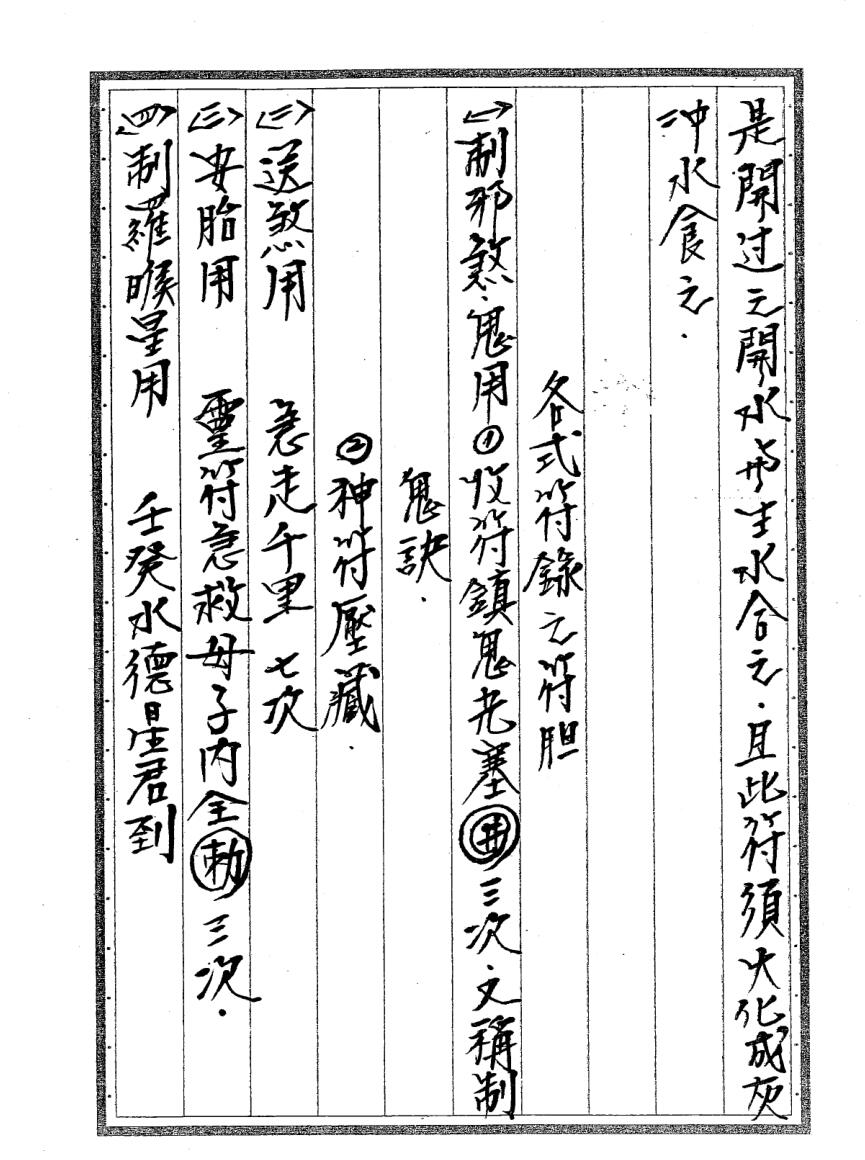 是開过之開水与生水合之．且此符須火化成灰
冲水食之．
各式符錄之符胆
(一)制邪煞．鬼用①收符鎮鬼老塞㊉三次．文稱制
鬼訣．
②神符壓藏．
(二)送煞用　急走千里　七次
(三)安胎用　靈符急救母子内全勅三次．
(四)制羅睺星用　壬癸水德星君到